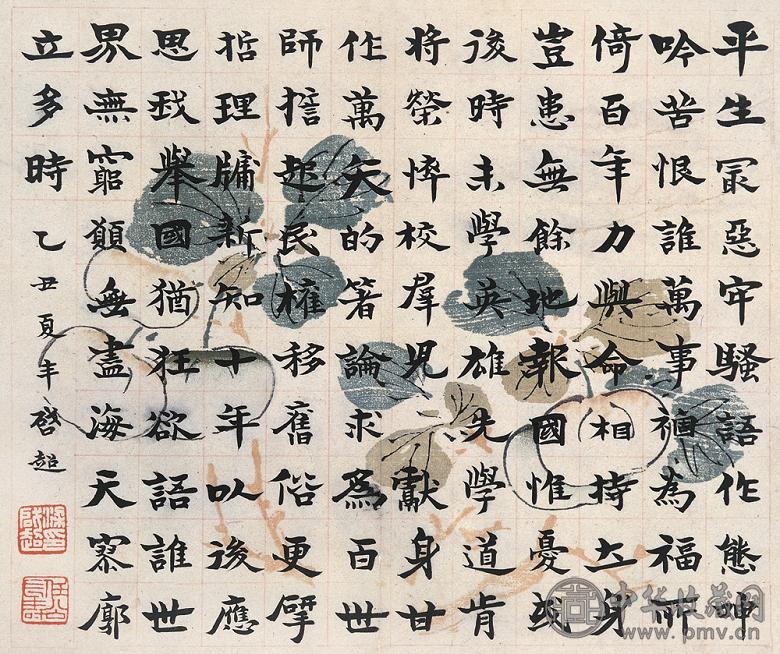 平生冣惡牢騷語作態呻
吟苦恨誰萬事禍為福所
倚百年力與命相持立身
豈患無餘地報國惟憂或
後時未學英雄先學道肯
將榮悴校羣兒獻身甘
作萬矢的箸論求為百世
師誓起民權移舊俗更擘
哲理牖新知十年以後應
思我舉國猶狂欲語誰世
界無窮願無盡海天寥廓
立多時 乙丑夏 啓超
中华收藏网
www.pmv.cn